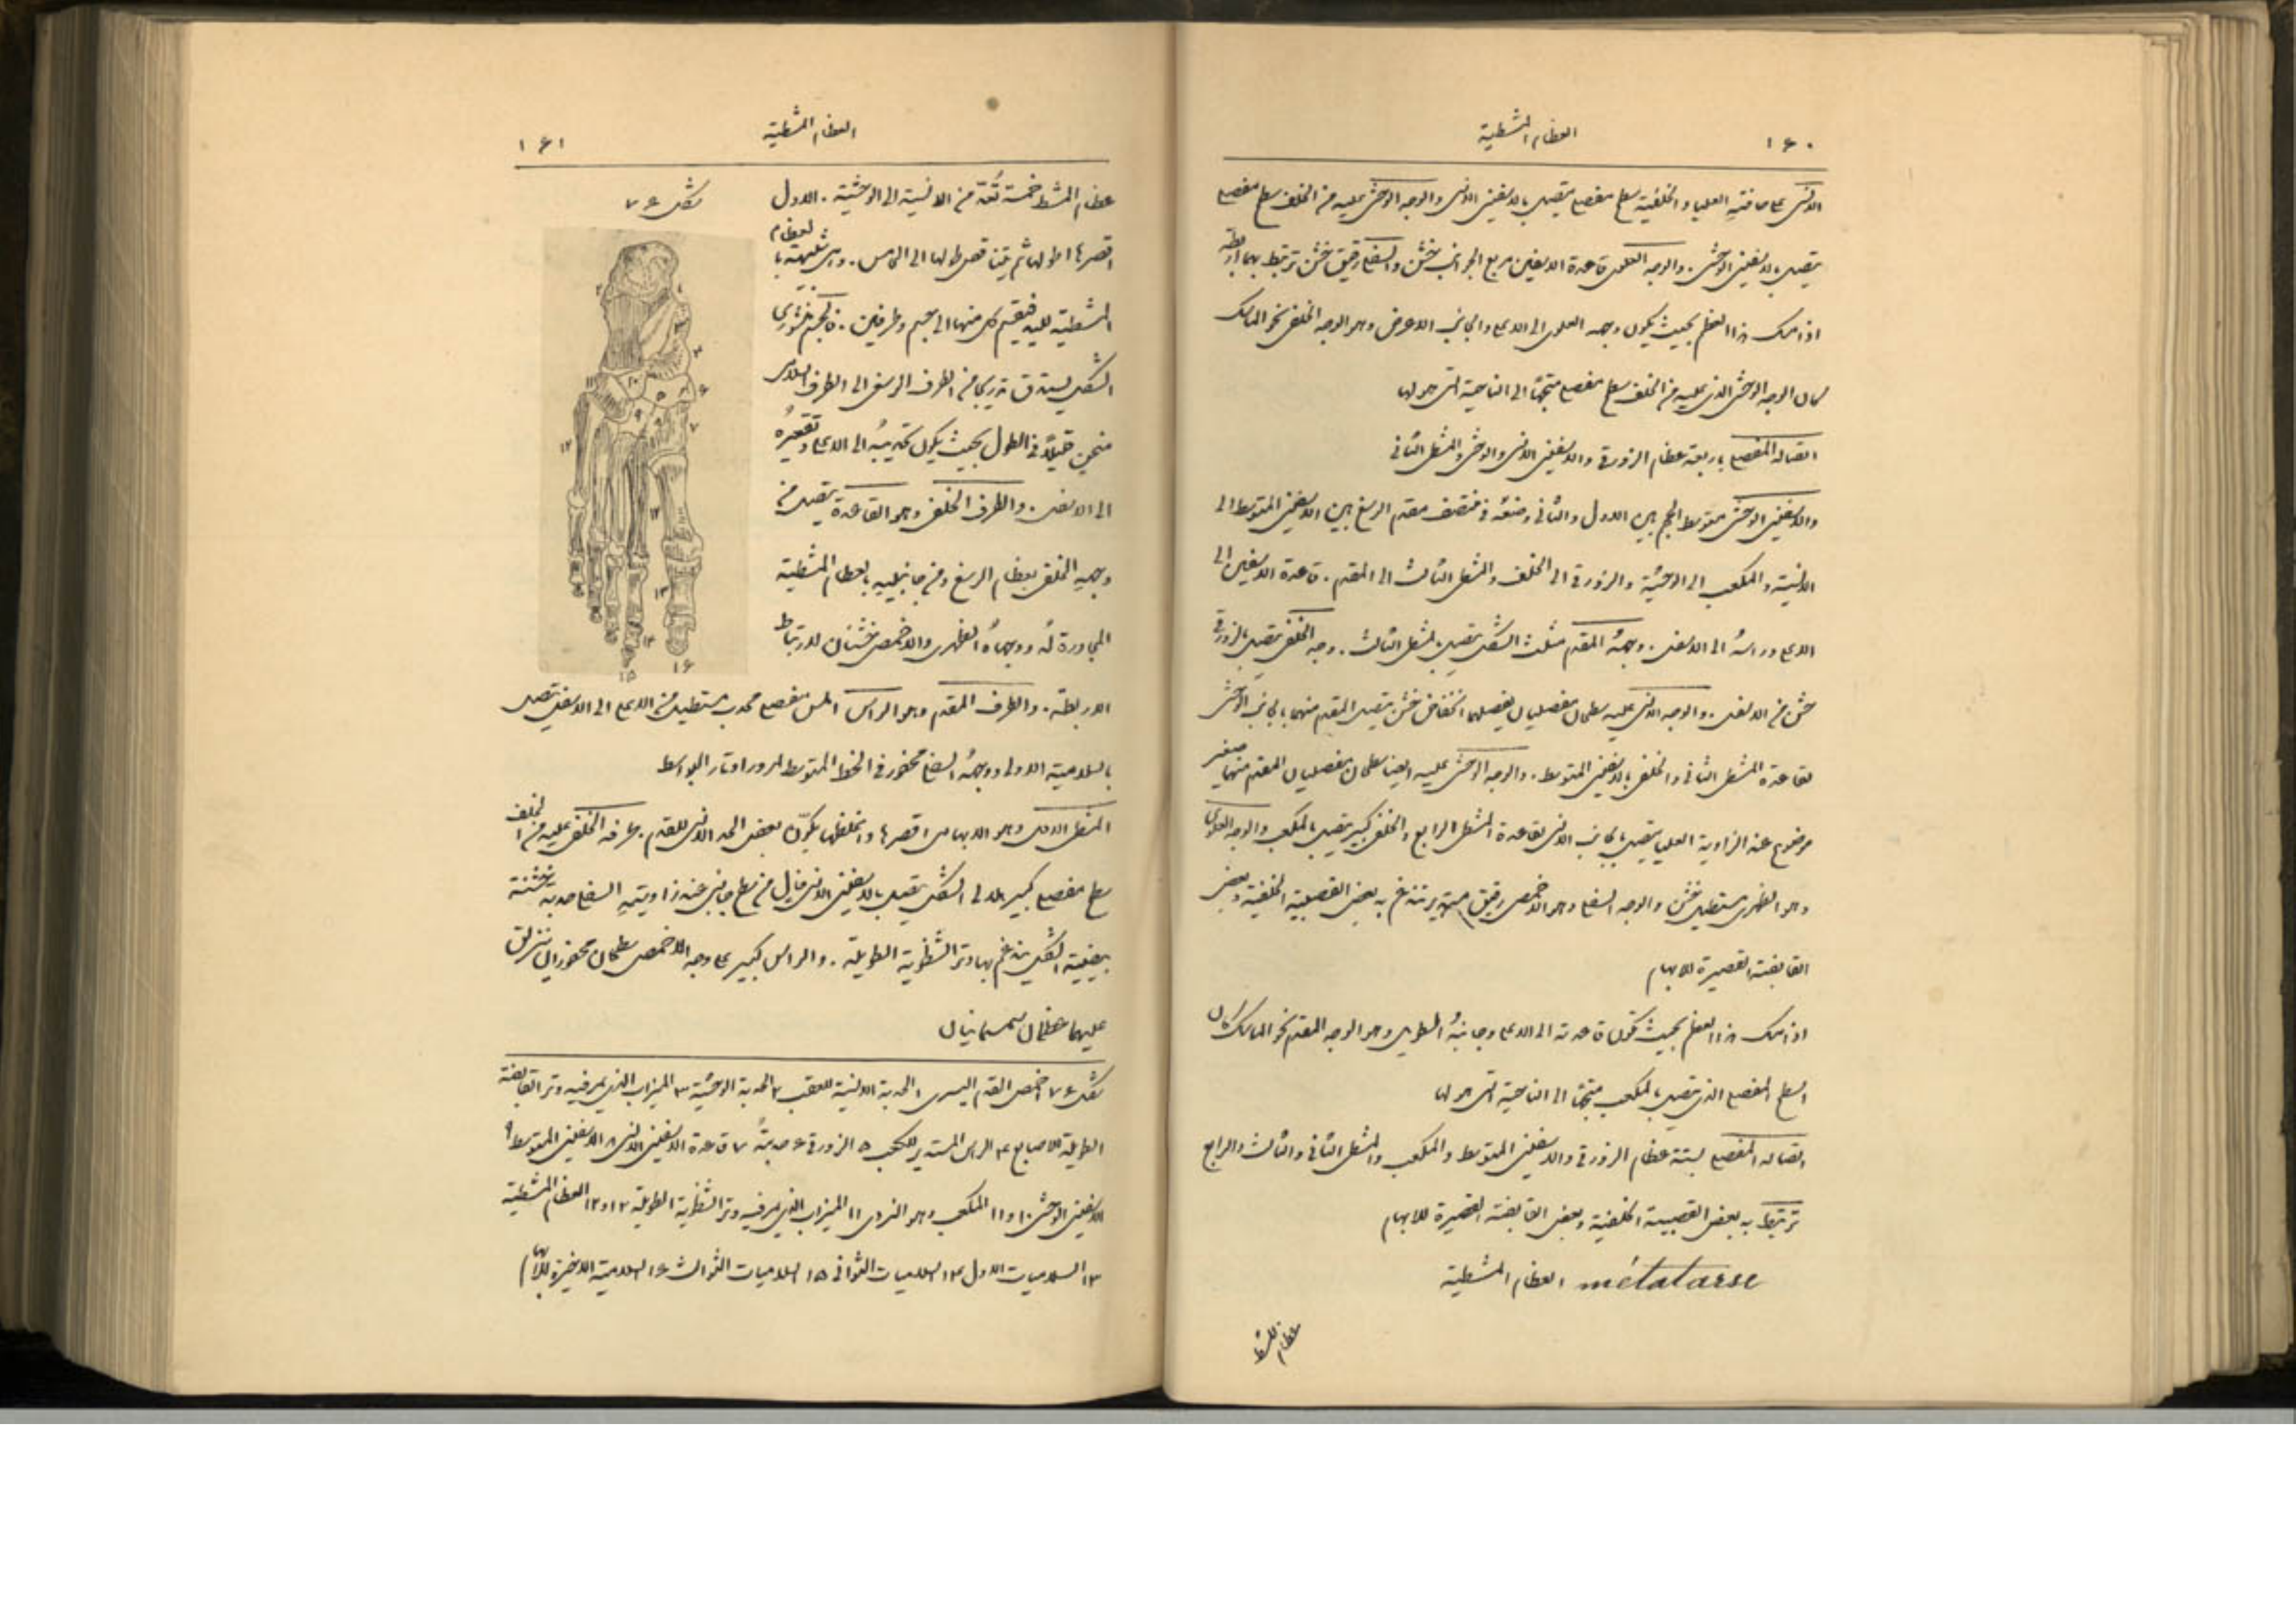 ١٦٠ العظام المشطية
الانسى على حافتيه العليا والخلفية سطح مفصلى يتصل بالاسفينى الانسى والوجه الوحشى عليه من الخلف سطح مفصلى
يتصل بالاسفينى الوحشى. والوجه العلوى قاعدة الاسفين مربع الجوانب خشن والسفلى رقيق خشن ترتبط بهما اربطة
اذا امسك هذا العظم بحيث يكون وجهه العلوى الى الاعلى والجانب الاعرض وهو الوجه الخلفى نحو الماسك
كان الوجه الوحشى الذى عليه من الخلف سطح مفصلى متجهًا الى الناحية التى هو لها
اتصاله المفصلى باربعة عظام الزورقى والاسفينى الانسى والوحشى والمشطى الثانى
والاسفينى الوحشى متوسط الحجم بين الاول والثانى وضعه فى منتصف مقدم الرسغ بين الاسفينى المتوسط الى
الانسية والمكعب الى الوحشية والزورقى الى الخلف والمشطى الثالث الى المقدم. قاعدة الاسفين الى
الاعلى وراسه الى الاسفل. وجهه المقدم مثلث الشكل يتصل بالمشطى الثالث. وجهه الخلفى يتصل بالزورقى
خشن من الاسفل. والوجه الانسى عليه سطحان مفصليان يفصلهما انخفاض خشن يتصل المقدم منهما بالجانب الوحشى
لقاعدة المشطى الثانى والخلفى بالاسفينى المتوسط. والوجه الوحشى عليه ايضا سطحان مفصليان المقدم منهما صغير
موضوع عند الزاوية العليا يتصل بالجانب الانسى لقاعدة المشطى الرابع والخلفى كبير يتصل بالمكعب والوجه العلوى
وهو الظهرى مستطيل خشن والوجه السفلى وهو الاخمصى رقيق مستدير تندغم به بعض القصبية الخلفية وبعض
القابضة القصيرة للابهام
اذا امسك هذا العظم بحيث تكون قاعدته الى الاعلى وجانبه الطويل وهو الوجه المقدم نحو الماسك كان
السطح المفصلى الذى يتصل بالمكعب متجهًا الى الناحية التى هو لها
اتصاله المفصلى بستة عظام الزورقى والاسفينى المتوسط والمكعب والمشطى الثانى والثالث والرابع
ترتبط به بعض القصبية الخلفية وبعض القابضة القصيرة للابهام
métatarse العظام المشطية
عظام المشط
العظام المشطية ١٦١
عظام المشط خمسة تُعدّ من الانسية الى الوحشية. الاول
شكل ٧٦
اقصرها اطولها ثم يتناقص طولها الى الخامس. وهى شبيهة بالعظام
المشطية لليد فينقسم كل منها الى جسم وطرفين. فالجسم منشورى
الشكل يستدق تدريجا من الطرف الرسغى الى الطرف السلامى
منحن قليلًا فى الطول بحيث يكون تحديبه الى الاعلى وتقعيره
الى الاسفل. والطرف الخلفى وهو القاعدة يتصل من
وجهه الخلفى بعظام الرسغ ومن جانبيه بالعظام المشطية
المجاورة له ووجهاه الظهرى والاخمصى خشنان لارتباط
الاربطة. والطرف المقدم وهو الراس املس مفصلى محدب مستطيل من الاعلى الى الاسفل يتصل
بالسلامية الاولى ووجهه السفلى محفور فى الخط المتوسط لمرور اوتار البواسط
المشطى الاول وهو الابهامى اقصرها واغلظها يكوّن بعض الحد الانسى للقدم. طرفه الخلفى عليه من الخلف
سطح مفصلى كبير هلالى الشكل يتصل بالاسفينى الانسى خال من سطح جانبى عند زاويته السفلى حدبة خشنة
بيضية الشكل يندغم بها وتر الشظوية الطويلة. والراس كبير على وجهه الاخمصى سطحان محفوران تنزلق
عليهما عظمان سمسمانيان
شكل ٧٦ اخمص القدم اليسرى ١ الحدبة الانسية للعقب ٢ الحدبة الوحشية ٣ الميزاب الذى يمر فيه وتر القابضة
الطويلة للاصابع ٤ الراس المستدير للكعب ٥ الزورقى ٦ حدبته ٧ قاعدة الاسفينى الانسى ٨ الاسفينى المتوسط ٩
الاسفينى الوحشى ١٠ و١١ المكعب وهو النردى ١١ الميزاب الذى يمر فيه وتر الشظوية الطويلة ١٢ و١٢ العظام المشطية
١٣ السلاميات الاول ١٤ السلاميات الثوانى ١٥ السلاميات الثوالث ١٦ السلامية الاخيرة للابهام